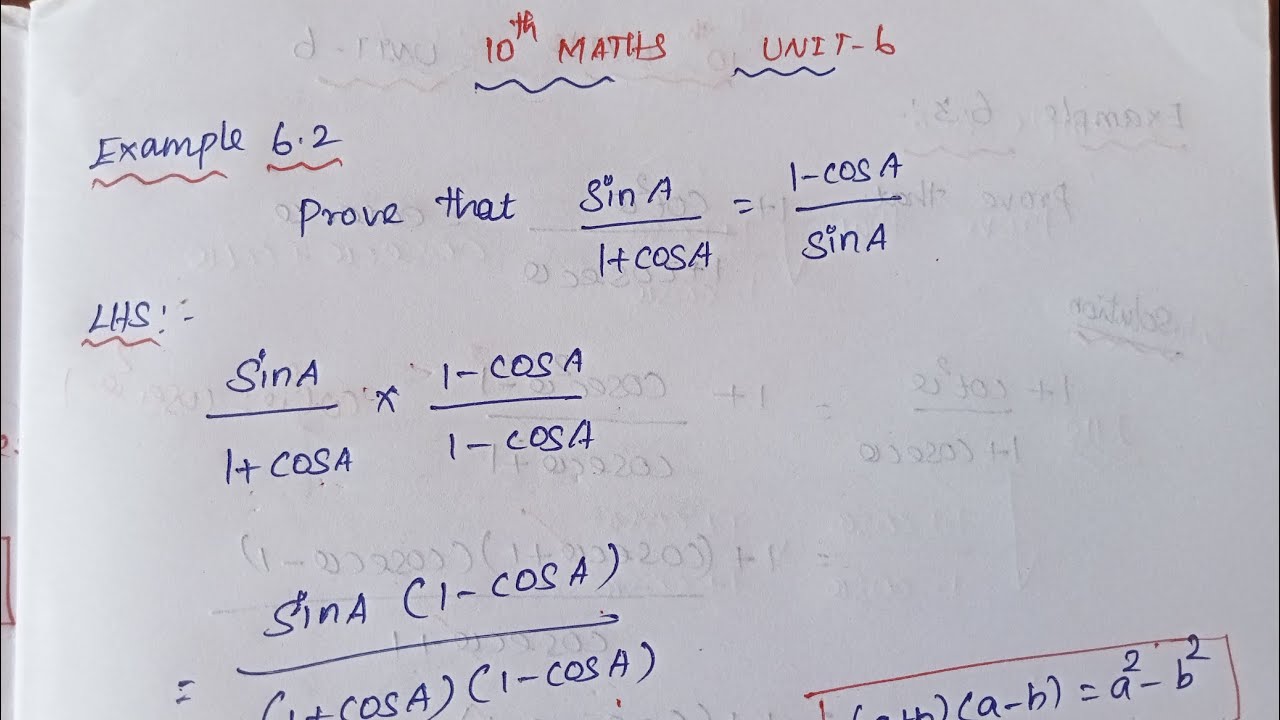 10th MATHS UNIT-6
Example 6.2
Prove that sinA / 1+cosA = 1-cosA / sinA
LHS:-
sinA / 1+cosA × 1-cosA / 1-cosA
= sinA (1-cosA) / (1+cosA)(1-cosA)
(a+b)(a-b) = a² - b²